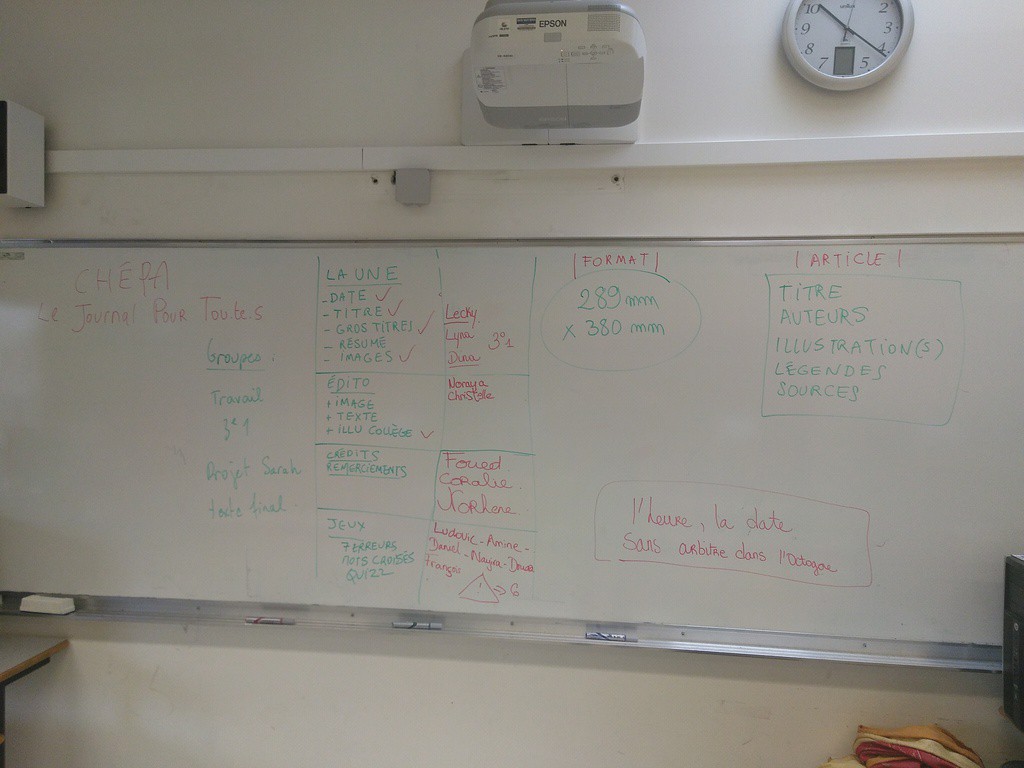 EPSON
10
2
9
3
8
4
7
5
CHÉPA
Le Journal Pour Tou.te.s
Groupes :
Travail
3e 1
Projet Sarah
texte final
LA UNE
- DATE ✓
- TITRE ✓
- GROS TITRES ✓
- RÉSUMÉ
- IMAGES ✓
Lecky
Lyna
Dina
3e1
ÉDITO
+ IMAGE
+ TEXTE
+ ILLU COLLÈGE ✓
Noraya
Christelle
CRÉDITS
REMERCIEMENTS
Foued
Coralie
Norhene
JEUX
7 ERREURS
MOTS CROISÉS
QUIZZ
Ludovic - Amine -
Daniel - Nayra -
François
! => 6
| FORMAT |
289 mm
x 380 mm
| ARTICLE |
TITRE
AUTEURS
ILLUSTRATION(S)
LÉGENDES
SOURCES
l'heure, la date
Sans arbitre dans l'Octogone